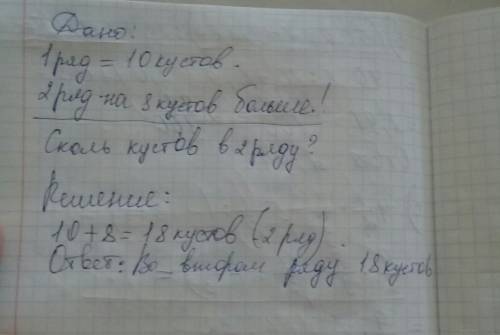 Дано:
1 ряд = 10 кустов.
2 ряд - на 8 кустов больше!
Сколь кустов в 2 ряду?
Решение:
10 + 8 = 18 кустов (2 ряд).
Ответ: Во втором ряду 18 кустов